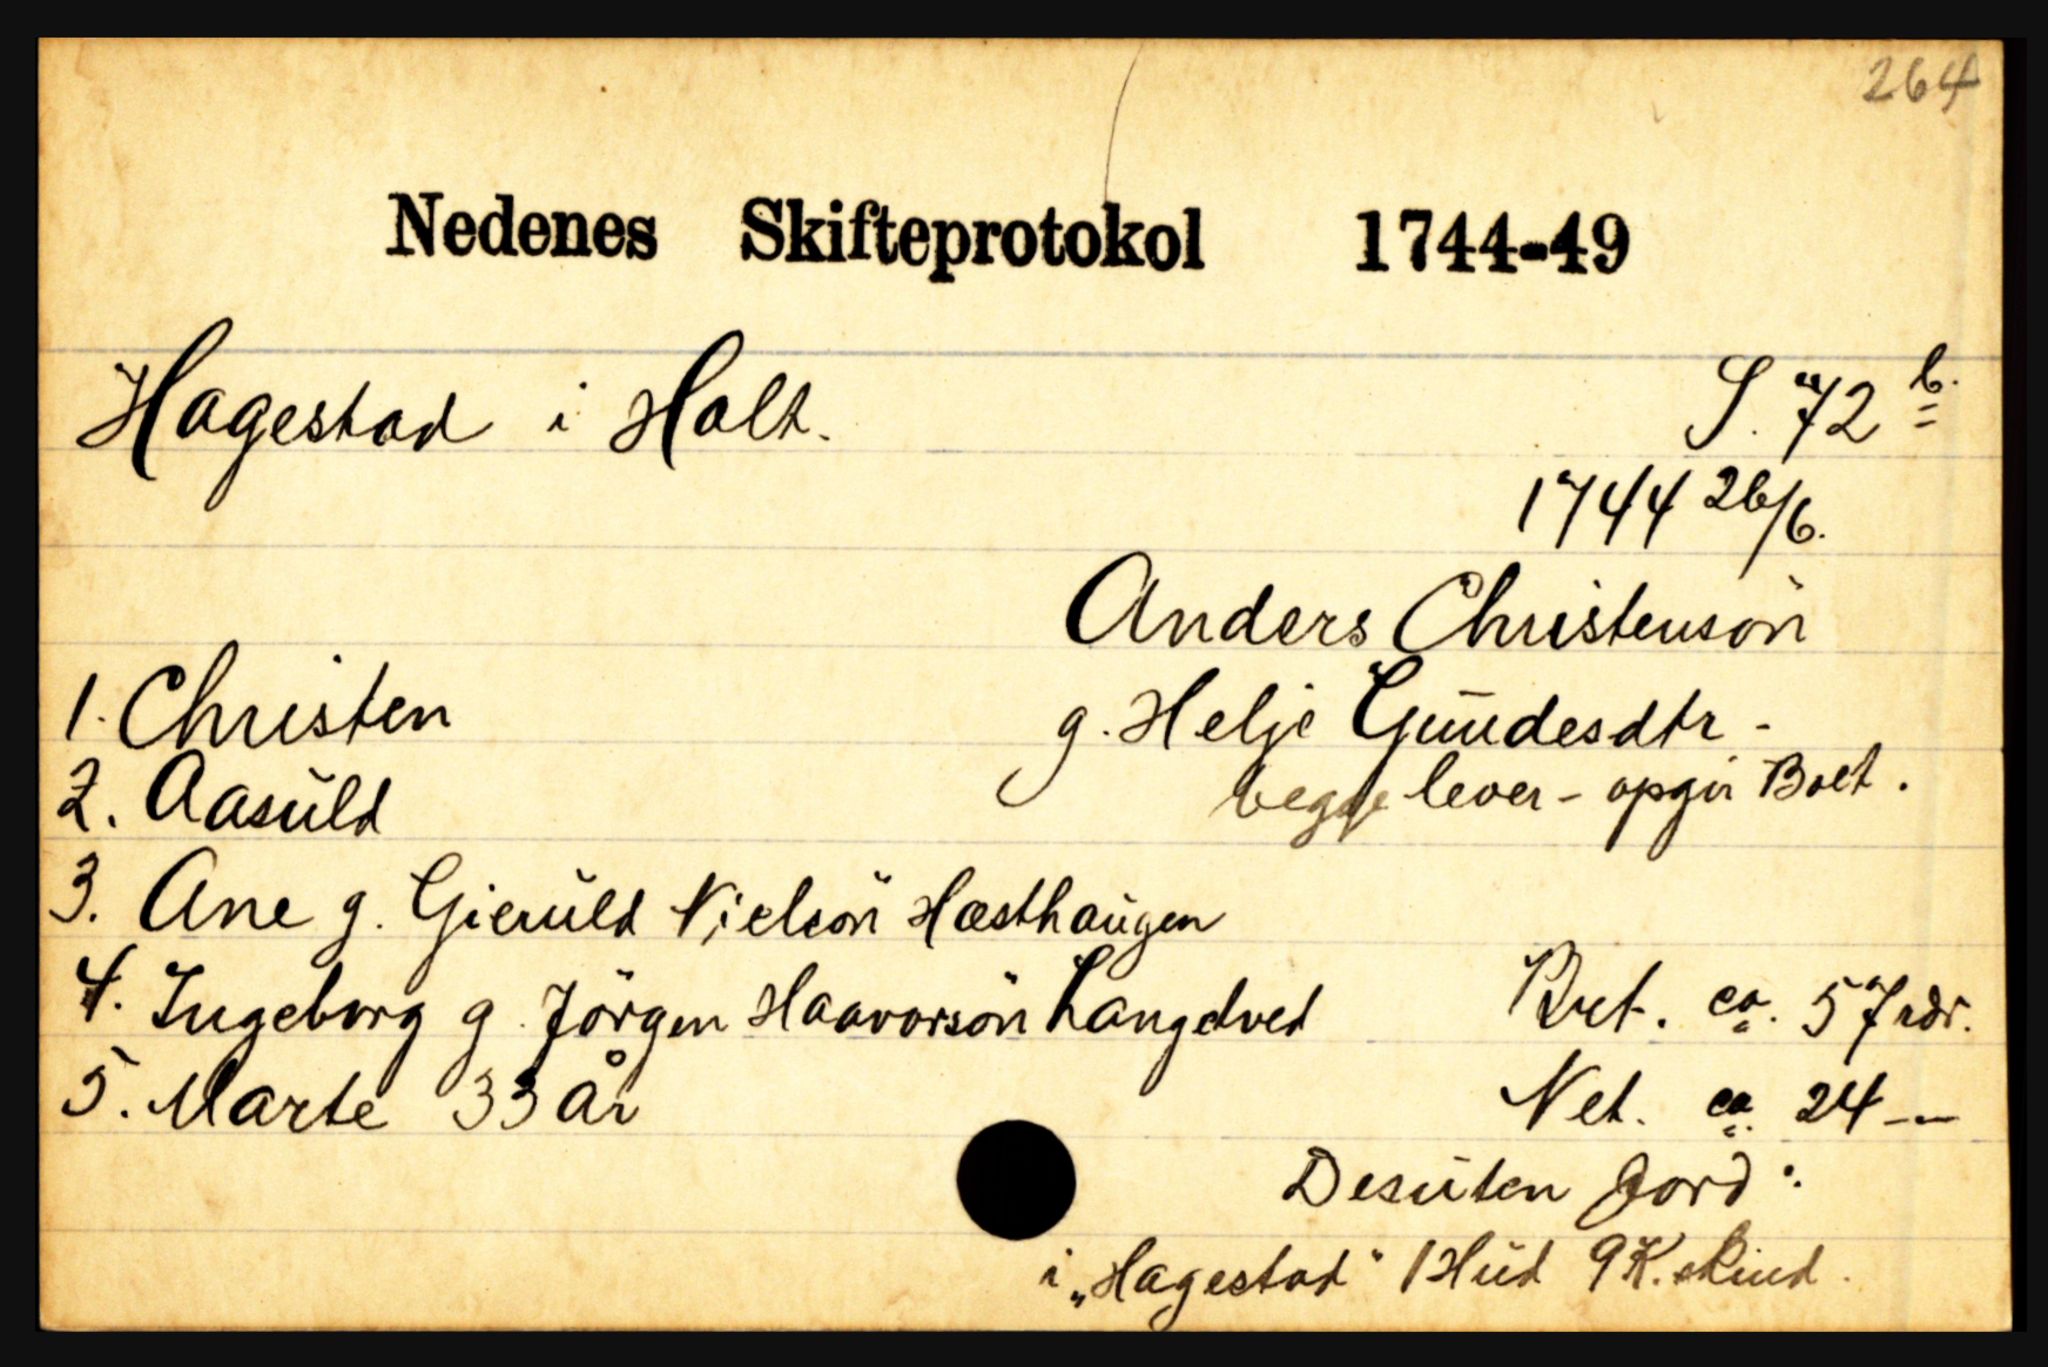 264
Nedenes Skifteprotokol 1744-49
Hagestad i Holt. S. 72 b.
1744 26/6.
Anders Christensön
1. Christen g. Helje Gundesdtr -
2. Aasuld begge lever - opgir Boet.
3. Ane g. Gieruld Nielsön Hæsthaugen
4. Ingeborg g. Jörgen Haavorsön Langelved Brt. ca. 57 rdr.
5. Marte 33 år Net. ca. 24 -—
Desuten Jord:
i „Hagestad" 1 Hud 9 K. skind.